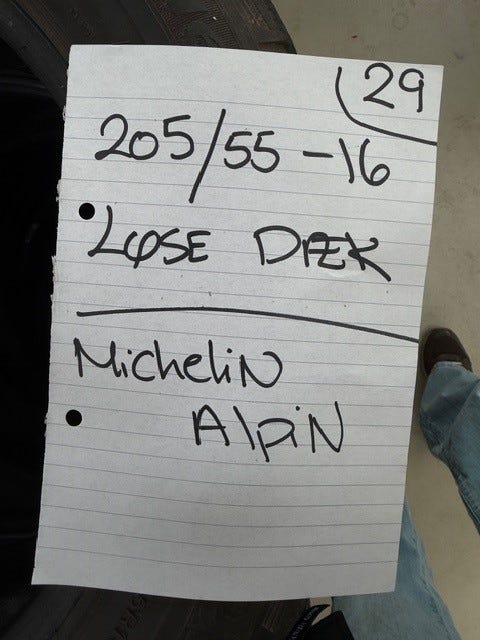 29
205/55-16
LØSE
Michelin
Alpin